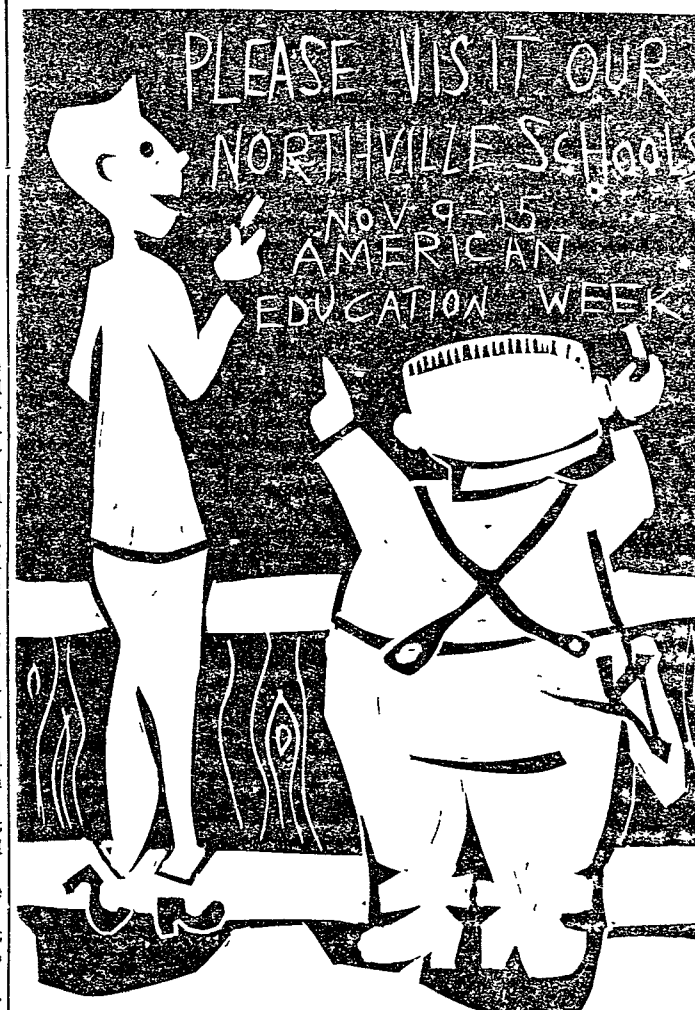 PLEASE VISIT OUR
NORTHVILLE SCHOOLS
NOV 9-15
AMERICAN
EDUCATION WEEK